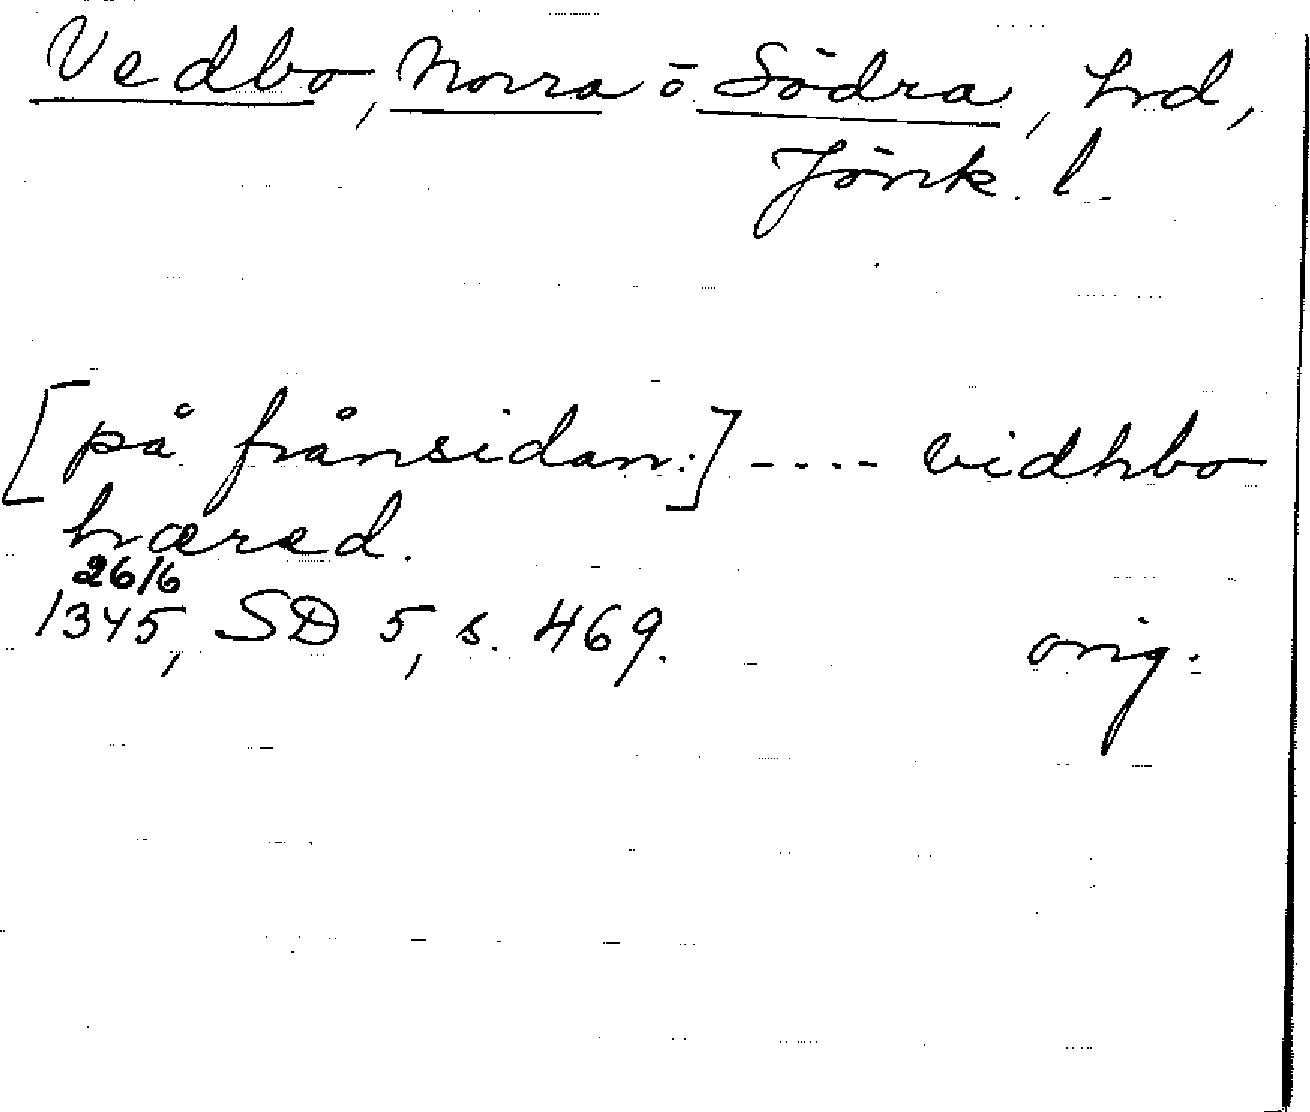 Vedbo, Norra o Södra, hrd,
Jönk. l.
[på frånsidan:] ---- vidhbo
hæred.
26/6
1345, SD 5, s. 469. orig.